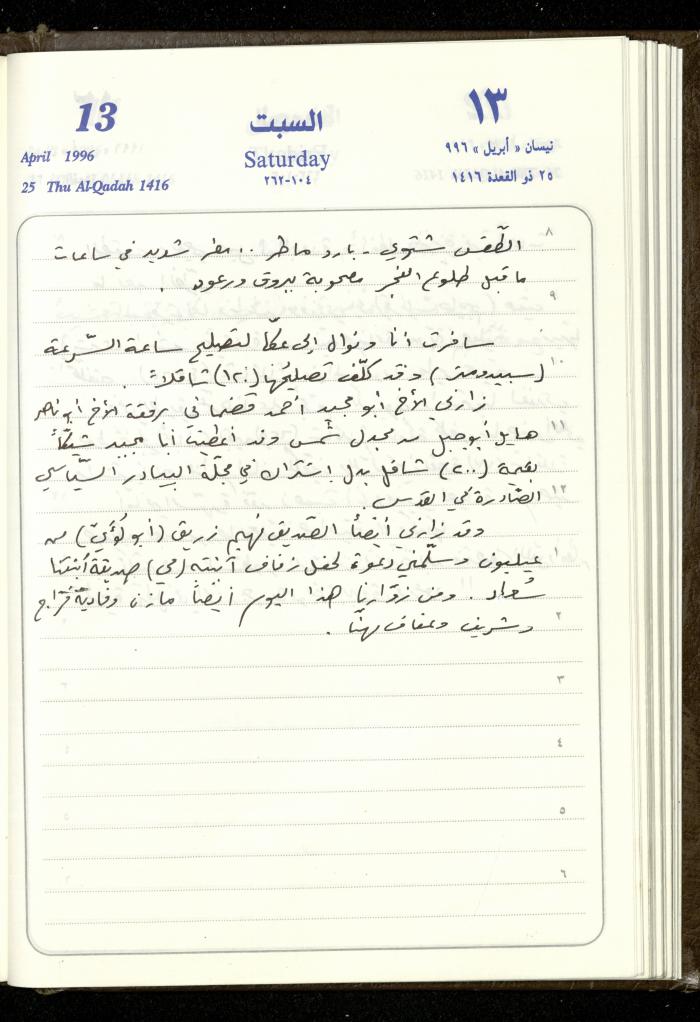 13
April 1996
25 Thu Al-Qadah 1416
السبت
Saturday
٢٦٢-١٠٤
١٣
نيسان « أبريل » ٩٩٦
٢٥ ذو القعدة ١٤١٦
٨
الطّقس شتوي - بارد ماطر .. مطر شديد في ساعات
ما قبل طلوع الفجر مصحوبة ببروق ورعود .
٩
سافرت أنا ونوال إلى عكّا لتصليح ساعة السّرعة
١٠
(سبيدومتر) وقد كلّف تصليحُها (١٢٠) شاقلاً .
زارني الأخ أبو مجيد أحمد قضماني برفقة الأخ أبو ناصر
١١
هايل أبو جبل من مجدل شمس وقد أعطيت أبا مجيد شيكّاً
بقيمة (٢٠٠) شاقل بدل اشتراك في مجلّة البيادر السّياسي
١٢
الصّادرة في القدس .
وقد زارني أيضاً الصّديق فهيم زريق (أبو لؤيّ) من
١
عيلبون وسلّمني دعوة لحفل زفاف آبنته (مي) صديقة اُبنتنا
سُعاد . ومن زوّارنا هذا اليوم أيضاً مازن وفاديّة فرّاج
٢
وشريف وعفاف مهنّا .
٣
٤
٥
٦